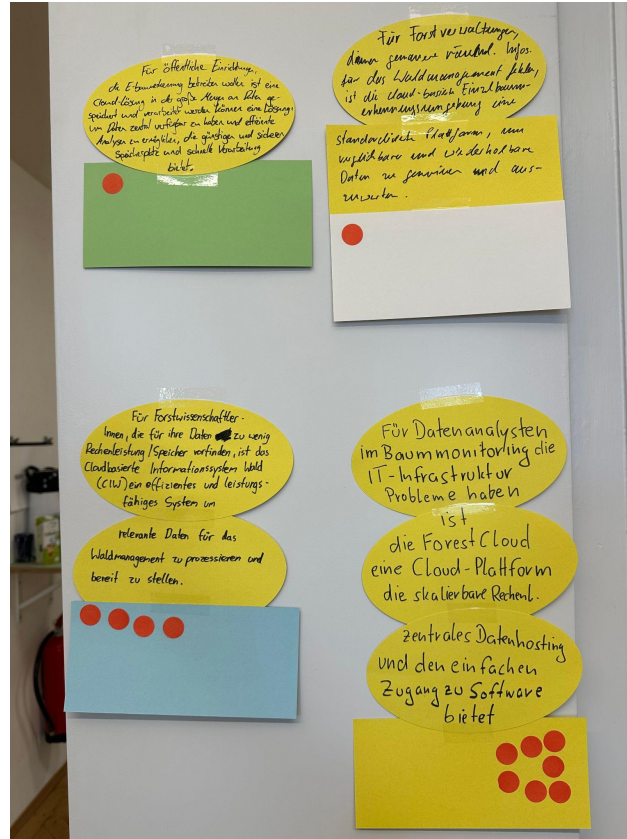 Für öffentliche Einrichtungen,
die E-baumerkennung betreiben wollen ist eine
Cloud-Lösung in der große Mengen an Daten ge-
speichert und verarbeitet werden können eine Lösung
um Daten zentral verfügbar zu haben und effiziente
Analysen zu ermöglichen, die günstigen und sicheren
Speicherplatz und schnelle Verarbeitung
bietet.
Für Forstverwaltungen,
denen genauere räuml. Infos.
für das Waldmanagement fehlen,
ist die cloud-basierte Einzelbaum-
erkennungsumgebung eine
standardisierte Plattform, um
vergleichbare und wiederholbare
Daten zu gewinnen und aus-
zuwerten.
Für Forstwissenschaftler-
Innen, die für ihre Daten zu wenig
Rechenleistung/Speicher vorfinden, ist das
Cloudbasierte Informationssystem Wald
(CIW) ein effizientes und leistungs-
fähiges System um
relevante Daten für das
Waldmanagement zu prozessieren und
bereit zu stellen.
Für Datenanalysten
im Baummonitoring die
IT-Infrastruktur
Probleme haben
ist
die ForestCloud
eine Cloud-Plattform
die skalierbare Rechenl.
zentrales Datenhosting
und den einfachen
Zugang zu Software
bietet